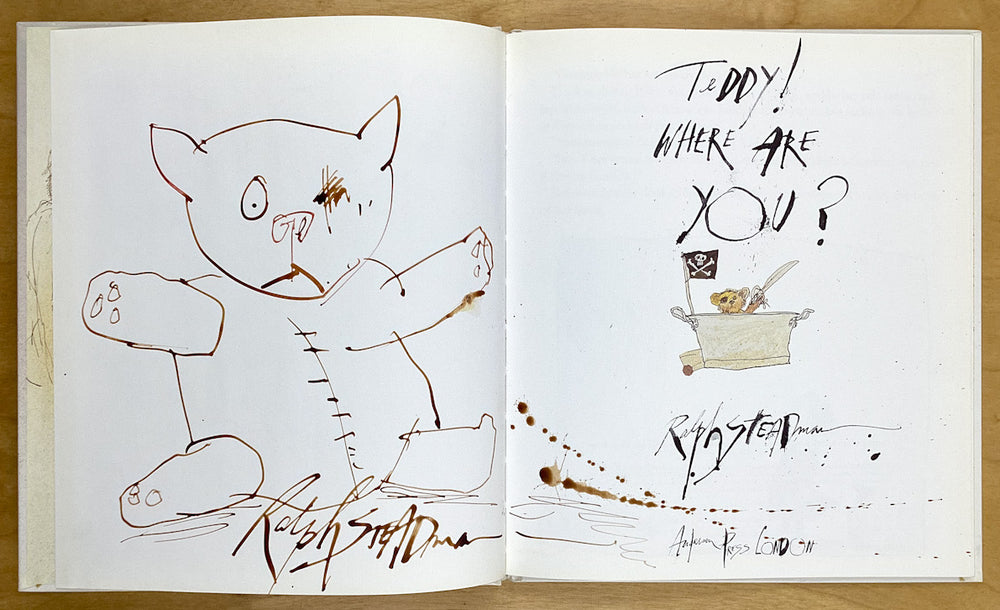 Ralph STEADman
TeDDY!
WHERE ARE
YOU?
Ralph STEADman
Andersen Press LONDON